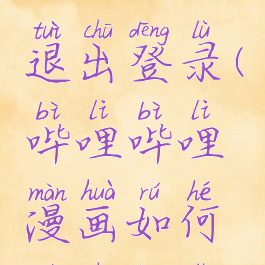 tuì chū dēng lù
退出登录(
bì lǐ bì lǐ
哔哩哔哩
màn huà rú hé
漫画如何